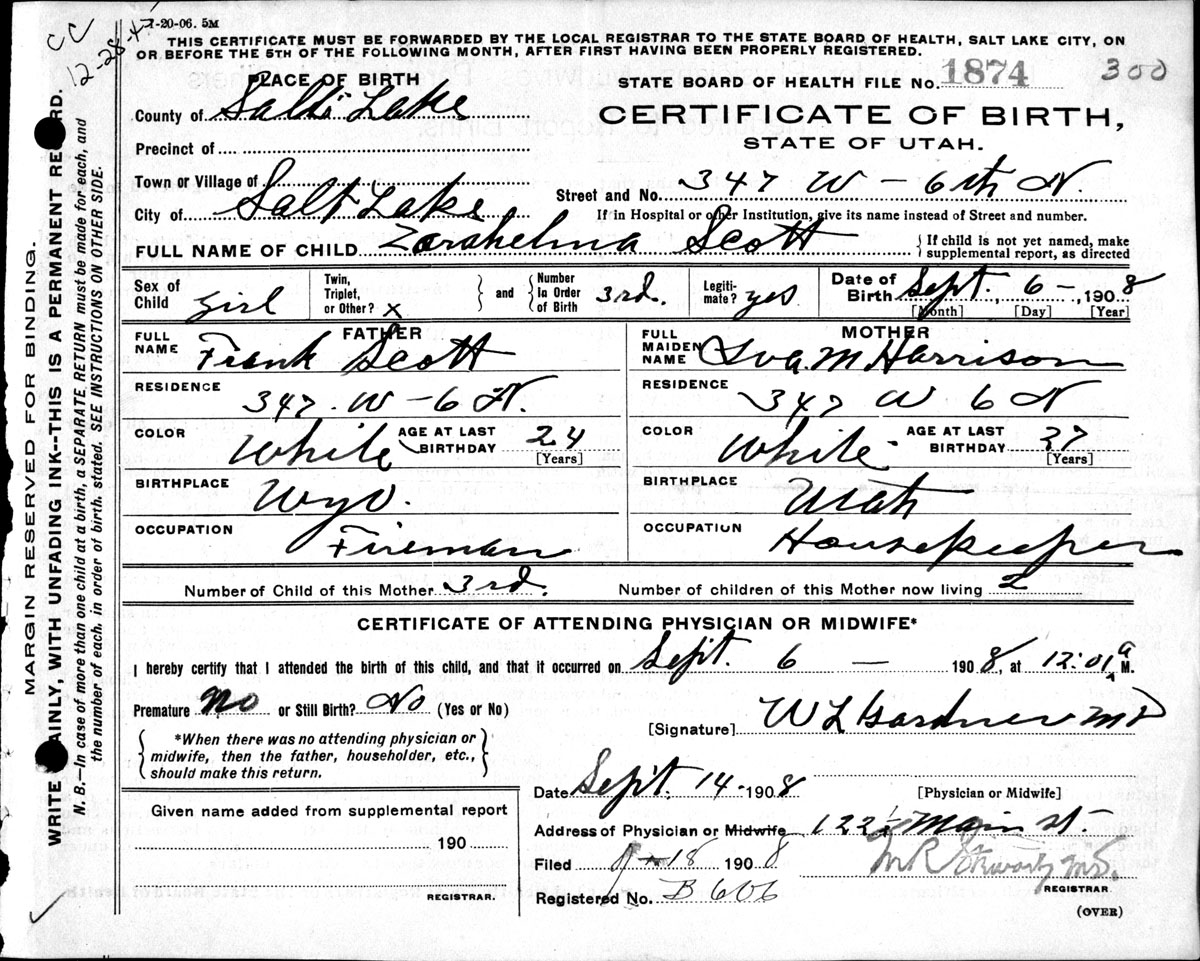 CC
12-28-4
1-20-06. 5M
THIS CERTIFICATE MUST BE FORWARDED BY THE LOCAL REGISTRAR TO THE STATE BOARD OF HEALTH, SALT LAKE CITY, ON
OR BEFORE THE 5TH OF THE FOLLOWING MONTH, AFTER FIRST HAVING BEEN PROPERLY REGISTERED.
PLACE OF BIRTH
STATE BOARD OF HEALTH FILE NO. 1874 300
County of Salt Lake
CERTIFICATE OF BIRTH,
STATE OF UTAH.
Precinct of
Town or Village of
Street and No. 347 W - 6th N.
City of Salt Lake
If in Hospital or other Institution, give its name instead of Street and number.
FULL NAME OF CHILD Zarahelma Scott
If child is not yet named, make supplemental report, as directed
Sex of Child girl
Twin, Triplet, or Other? x
and Number In Order of Birth 3rd.
Legiti-mate? yes
Date of Birth Sept. 6 -, 1908
[Month] [Day] [Year]
FATHER
FULL NAME Frank Scott
RESIDENCE
347 . W - 6 N.
COLOR White AGE AT LAST BIRTHDAY 24
[Years]
BIRTHPLACE
Wyo.
OCCUPATION
Fireman
MOTHER
FULL MAIDEN NAME Iva. M Harrison
RESIDENCE
347 W 6 N
COLOR White AGE AT LAST BIRTHDAY 27
[Years]
BIRTHPLACE
Utah
OCCUPATION
Housekeeper
Number of Child of this Mother 3rd. Number of children of this Mother now living 2
CERTIFICATE OF ATTENDING PHYSICIAN OR MIDWIFE*
I hereby certify that I attended the birth of this child, and that it occurred on Sept. 6 - 1908, at 12:01 a M.
Premature No or Still Birth? No (Yes or No)
[Signature] W L Gardner MD
*When there was no attending physician or
midwife, then the father, householder, etc.,
should make this return.
Date Sept. 14 - 1908
[Physician or Midwife]
Given name added from supplemental report
190
REGISTRAR.
Address of Physician or Midwife 122½ Main st.
Filed 9-18 1908
M R Stewart MD.
REGISTRAR.
Registered No. B 606
(OVER)
MARGIN RESERVED FOR BINDING.
WRITE AINLY, WITH UNFADING INK--THIS IS A PERMANENT RE RD.
N. B.—In case of more than one child at a birth, a SEPARATE RETURN must be made for each, and
the number of each, in order of birth, stated. SEE INSTRUCTIONS ON OTHER SIDE.